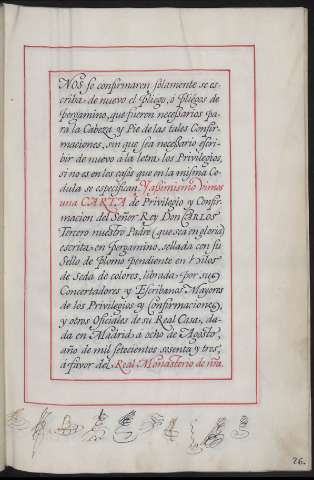 Nos se confirmaren sólamente se es-
criba de nuevo el pliego, ó pliegos de
Pergamino, que fueron necessarios pa-
ra la Cabeza, y Pie de las tales Confir-
maciones, sin que sea necessario escri-
bir de nuevo á la letra, los Privilegios,
si no es en los casos que en la misma Ce-
dula se especifican. Y assimismo vimos
una CARTA de Privilegio y Confir-
macion del Señor Rey Don CARLOS
Tercero nuestro Padre (que sea en gloria)
escrita en pergamino, sellada con su
Sello de Plomo pendiente en hilos
de Seda de colores, librada por sus
Concertadores y Escribanos Mayores
de los Privilegios y Confirmaciones,
y otros Oficiales de su Real Casa, da-
da en Madrid a ocho de Agosto,
año de mil setecientos sesenta y tres,
á favor del Real Monasterio de nra.
26.